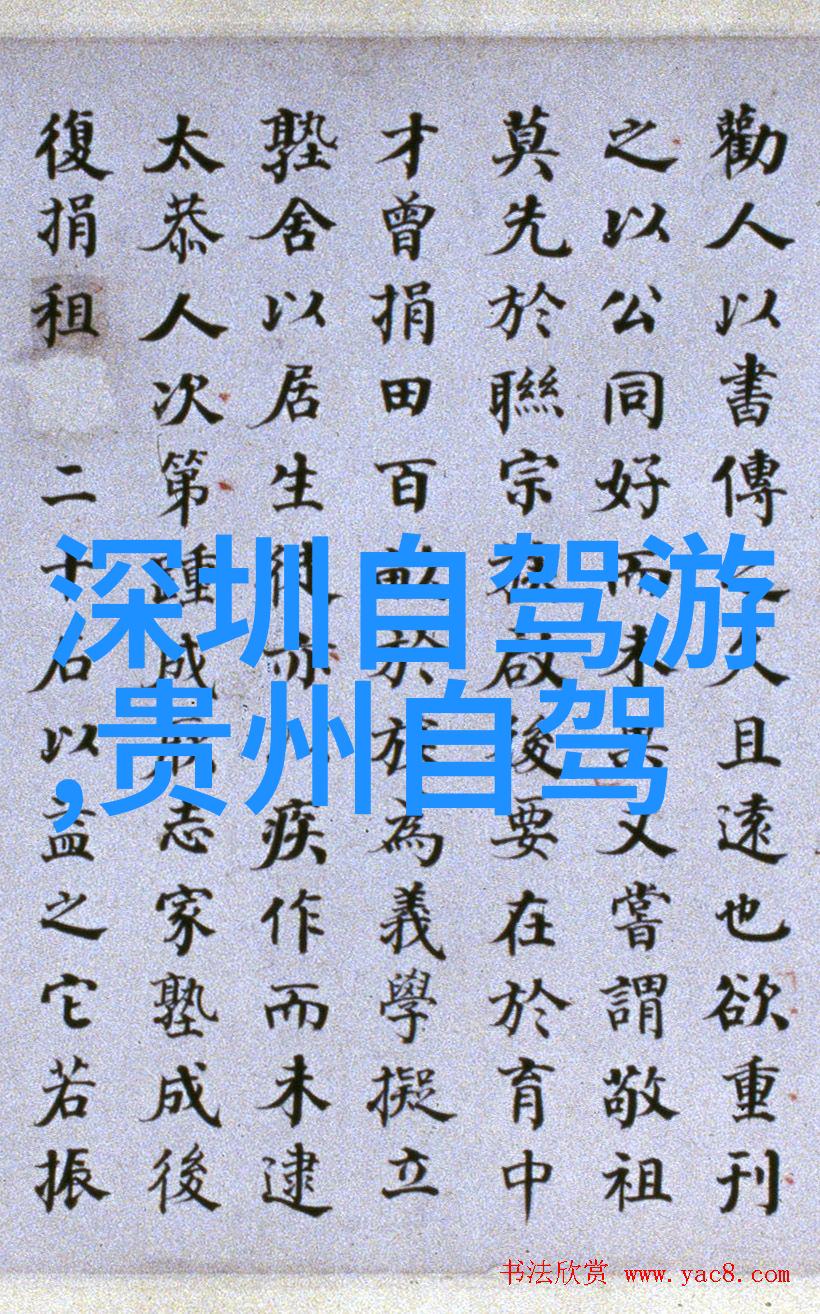 勸人以書傳之久且遠也欲重刊
之以公同好而未果又嘗謂敬祖
莫先於聯宗族啟後要在於育中
才曾捐田百畝於族為義學擬立
塾舍以居生徒亦疾作而未逮
太恭人次第踵成厥志家塾成後
復捐租二十石以益之它若振
深圳自驾游
,贵州自驾
书法欣赏 www.yac8.com